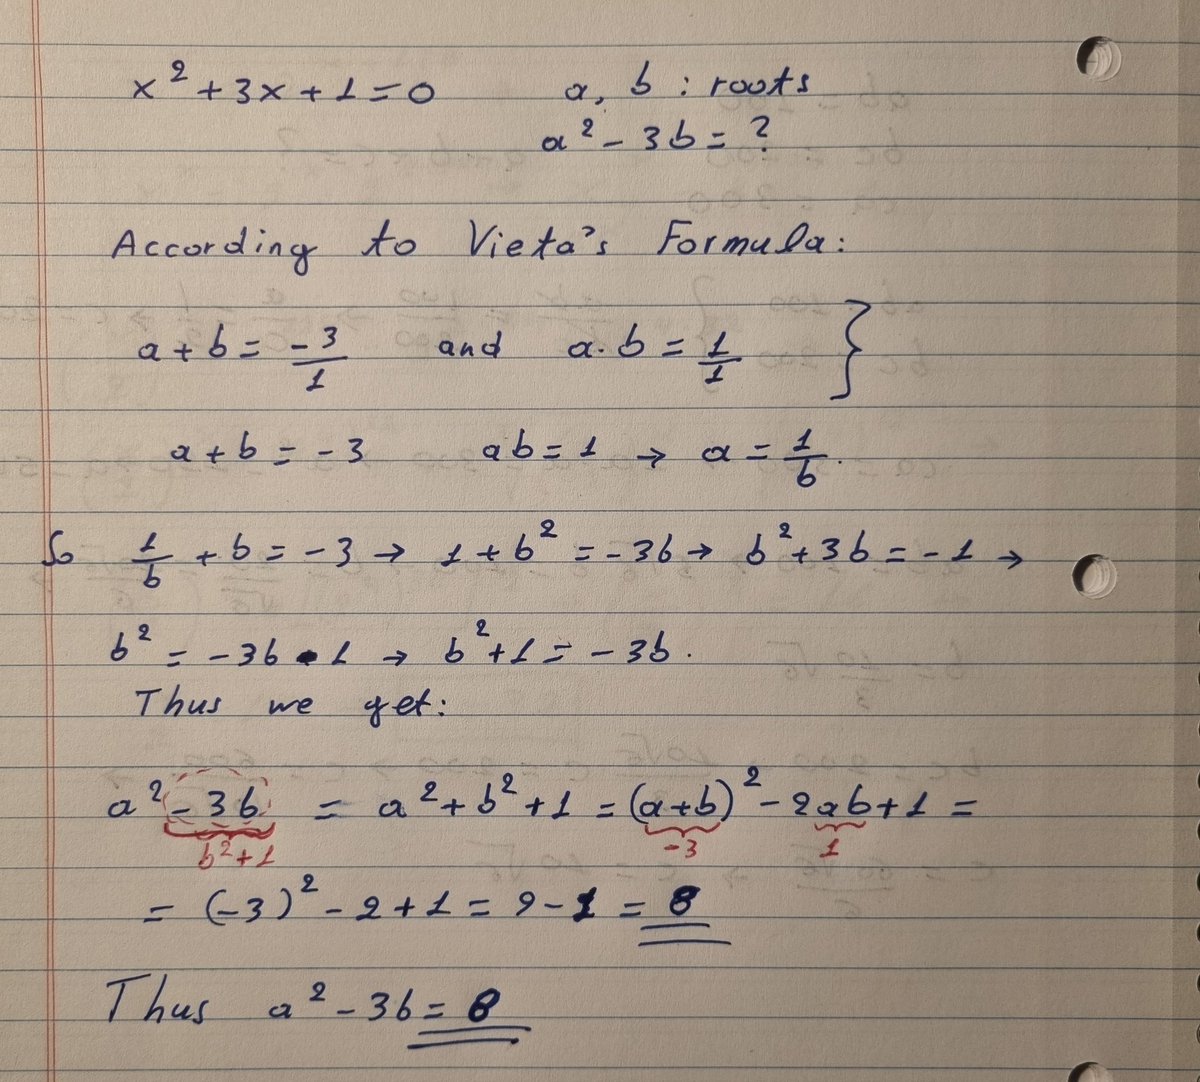 x² + 3x + 1 = 0 a, b : roots
a² - 3b = ?
According to Vieta's Formula:
a + b = -3/1 and a · b = 1/1 }
a + b = -3 ab = 1 → a = 1/b.
So 1/b + b = -3 → 1 + b² = -3b → b² + 3b = -1 →
b² = -3b - 1 → b² + 1 = -3b.
Thus we get:
a² - 3b = a² + b² + 1 = (a+b)² - 2ab + 1 =
b² + 1 -3 1
= (-3)² - 2 + 1 = 9 - 1 = 8
Thus a² - 3b = 8